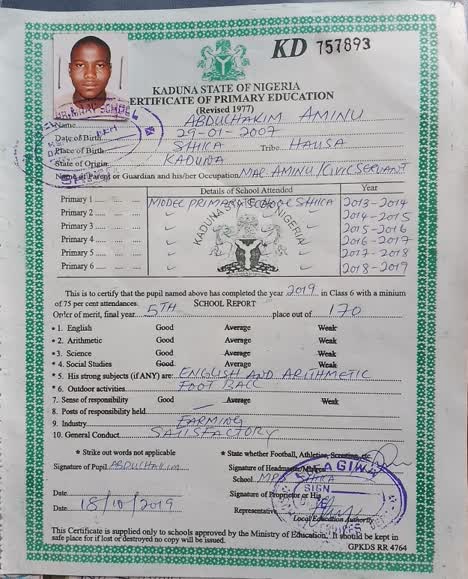 KD 757893
KADUNA STATE OF NIGERIA
ERTIFICATE OF PRIMARY EDUCATION
(Revised 1977)
Name ABDULHAKIM AMINU
Date of Birth 29-01-2007
Place of Birth SHIKA Tribe HAUSA
State of Origin KADUNA
Name of Parent or Guardian and his/her Occupation MAL AMINU/CIVIL SERVANT
Details of School Attended Year
Primary 1 MODEL PRIMARY SCHOOL SHIKA 2013-2014
Primary 2 2014-2015
Primary 3 2015-2016
Primary 4 2016-2017
Primary 5 2017-2018
Primary 6 2018-2019
KADUNA STATE OF NIGERIA
This is to certify that the pupil named above has completed the year 2019 in Class 6 with a minium
of 75 per cent attendances. SCHOOL REPORT
Order of merit, final year 5TH place out of 170
* 1. English Good Average Weak
* 2. Arithmetic Good Average Weak
* 3. Science Good Average Weak
* 4. Social Studies Good Average Weak
* 5. His strong subjects (if ANY) are: ENGLISH AND ARITHMETIC
* 6. Outdoor activities FOOT BALL
7. Sense of responsibility Good Average Weak
8. Posts of responsibility held
9. Industry FARMING
10. General Conduct SATISFACTORY
* Strike out words not applicable * State whether Football, Athletics, Scouting, etc.
Signature of Pupil ABDULHAKIM Signature of Headmaster/Mistress
School MPS SHIKA
Date Signature of Proprietor or His
Date 18/10/2019 Representative
Local Education Authority
SIGN
This Certificate is supplied only to schools approved by the Ministry of Education. It should be kept in
safe place for if lost or destroyed no copy will be issued.
GPKDS RR 4764